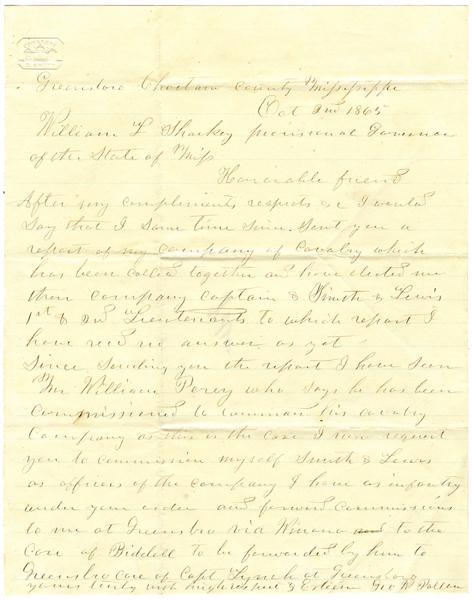 Greensboro Choctaw County Mississippi
Oct 2nd 1865
William L Sharkey provisional Governor
of the State of Miss
Honorable friend
After my compliments respects &c I would
Say that I some time since Sent you a
report of my company of Cavalry which
has been called together and have elected me
their company captain & Smith & Lewis
1st & 2nd Lieutenants to which report I
have recd no answer as yet
Since sending you the report I have seen
Mr William Perry who says he has been
commissioned to command his cavalry
Company as this is the case I now request
you to commission myself Smith & Lewis
as officers of the company I have as infantry
under your order and forward commissions
to me at Greensbro via Winona to the
Care of Biddell to be forwarded by him to
Greensbro care of Capt Lynch at Greensboro
yours truly with high respect & Esteem Geo W